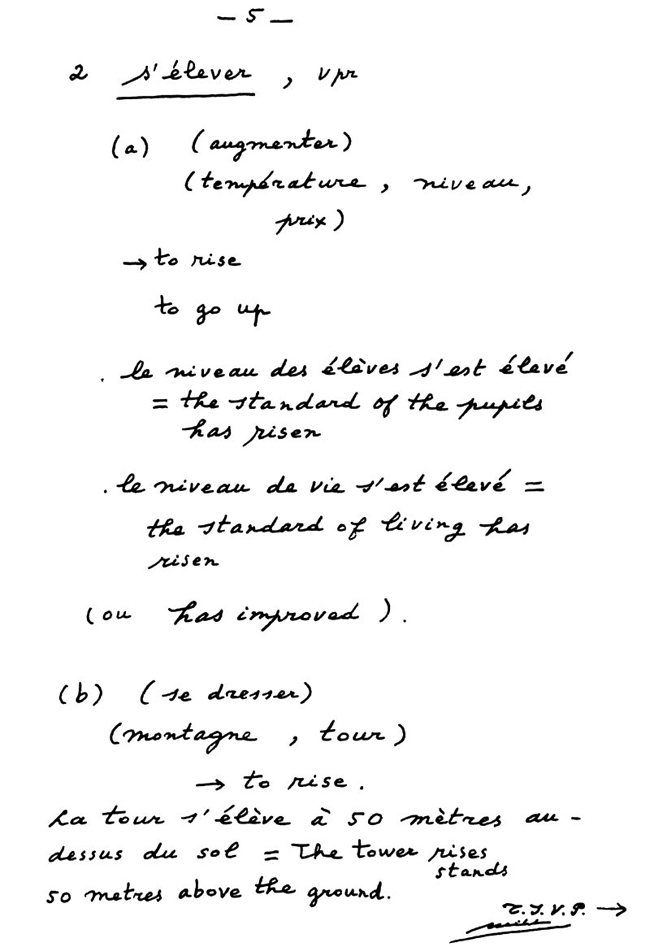 — 5 —
2 s'élever , vpr
(a) (augmenter)
(température , niveau,
prix)
→ to rise
to go up
. le niveau des élèves s'est élevé
= the standard of the pupils
has risen
. le niveau de vie s'est élevé =
the standard of living has
risen
(ou has improved ).
(b) (se dresser)
(montagne , tour)
→ to rise.
La tour s'élève à 50 mètres au-
dessus du sol = The tower rises
stands
50 metres above the ground.
T.S.V.P. →